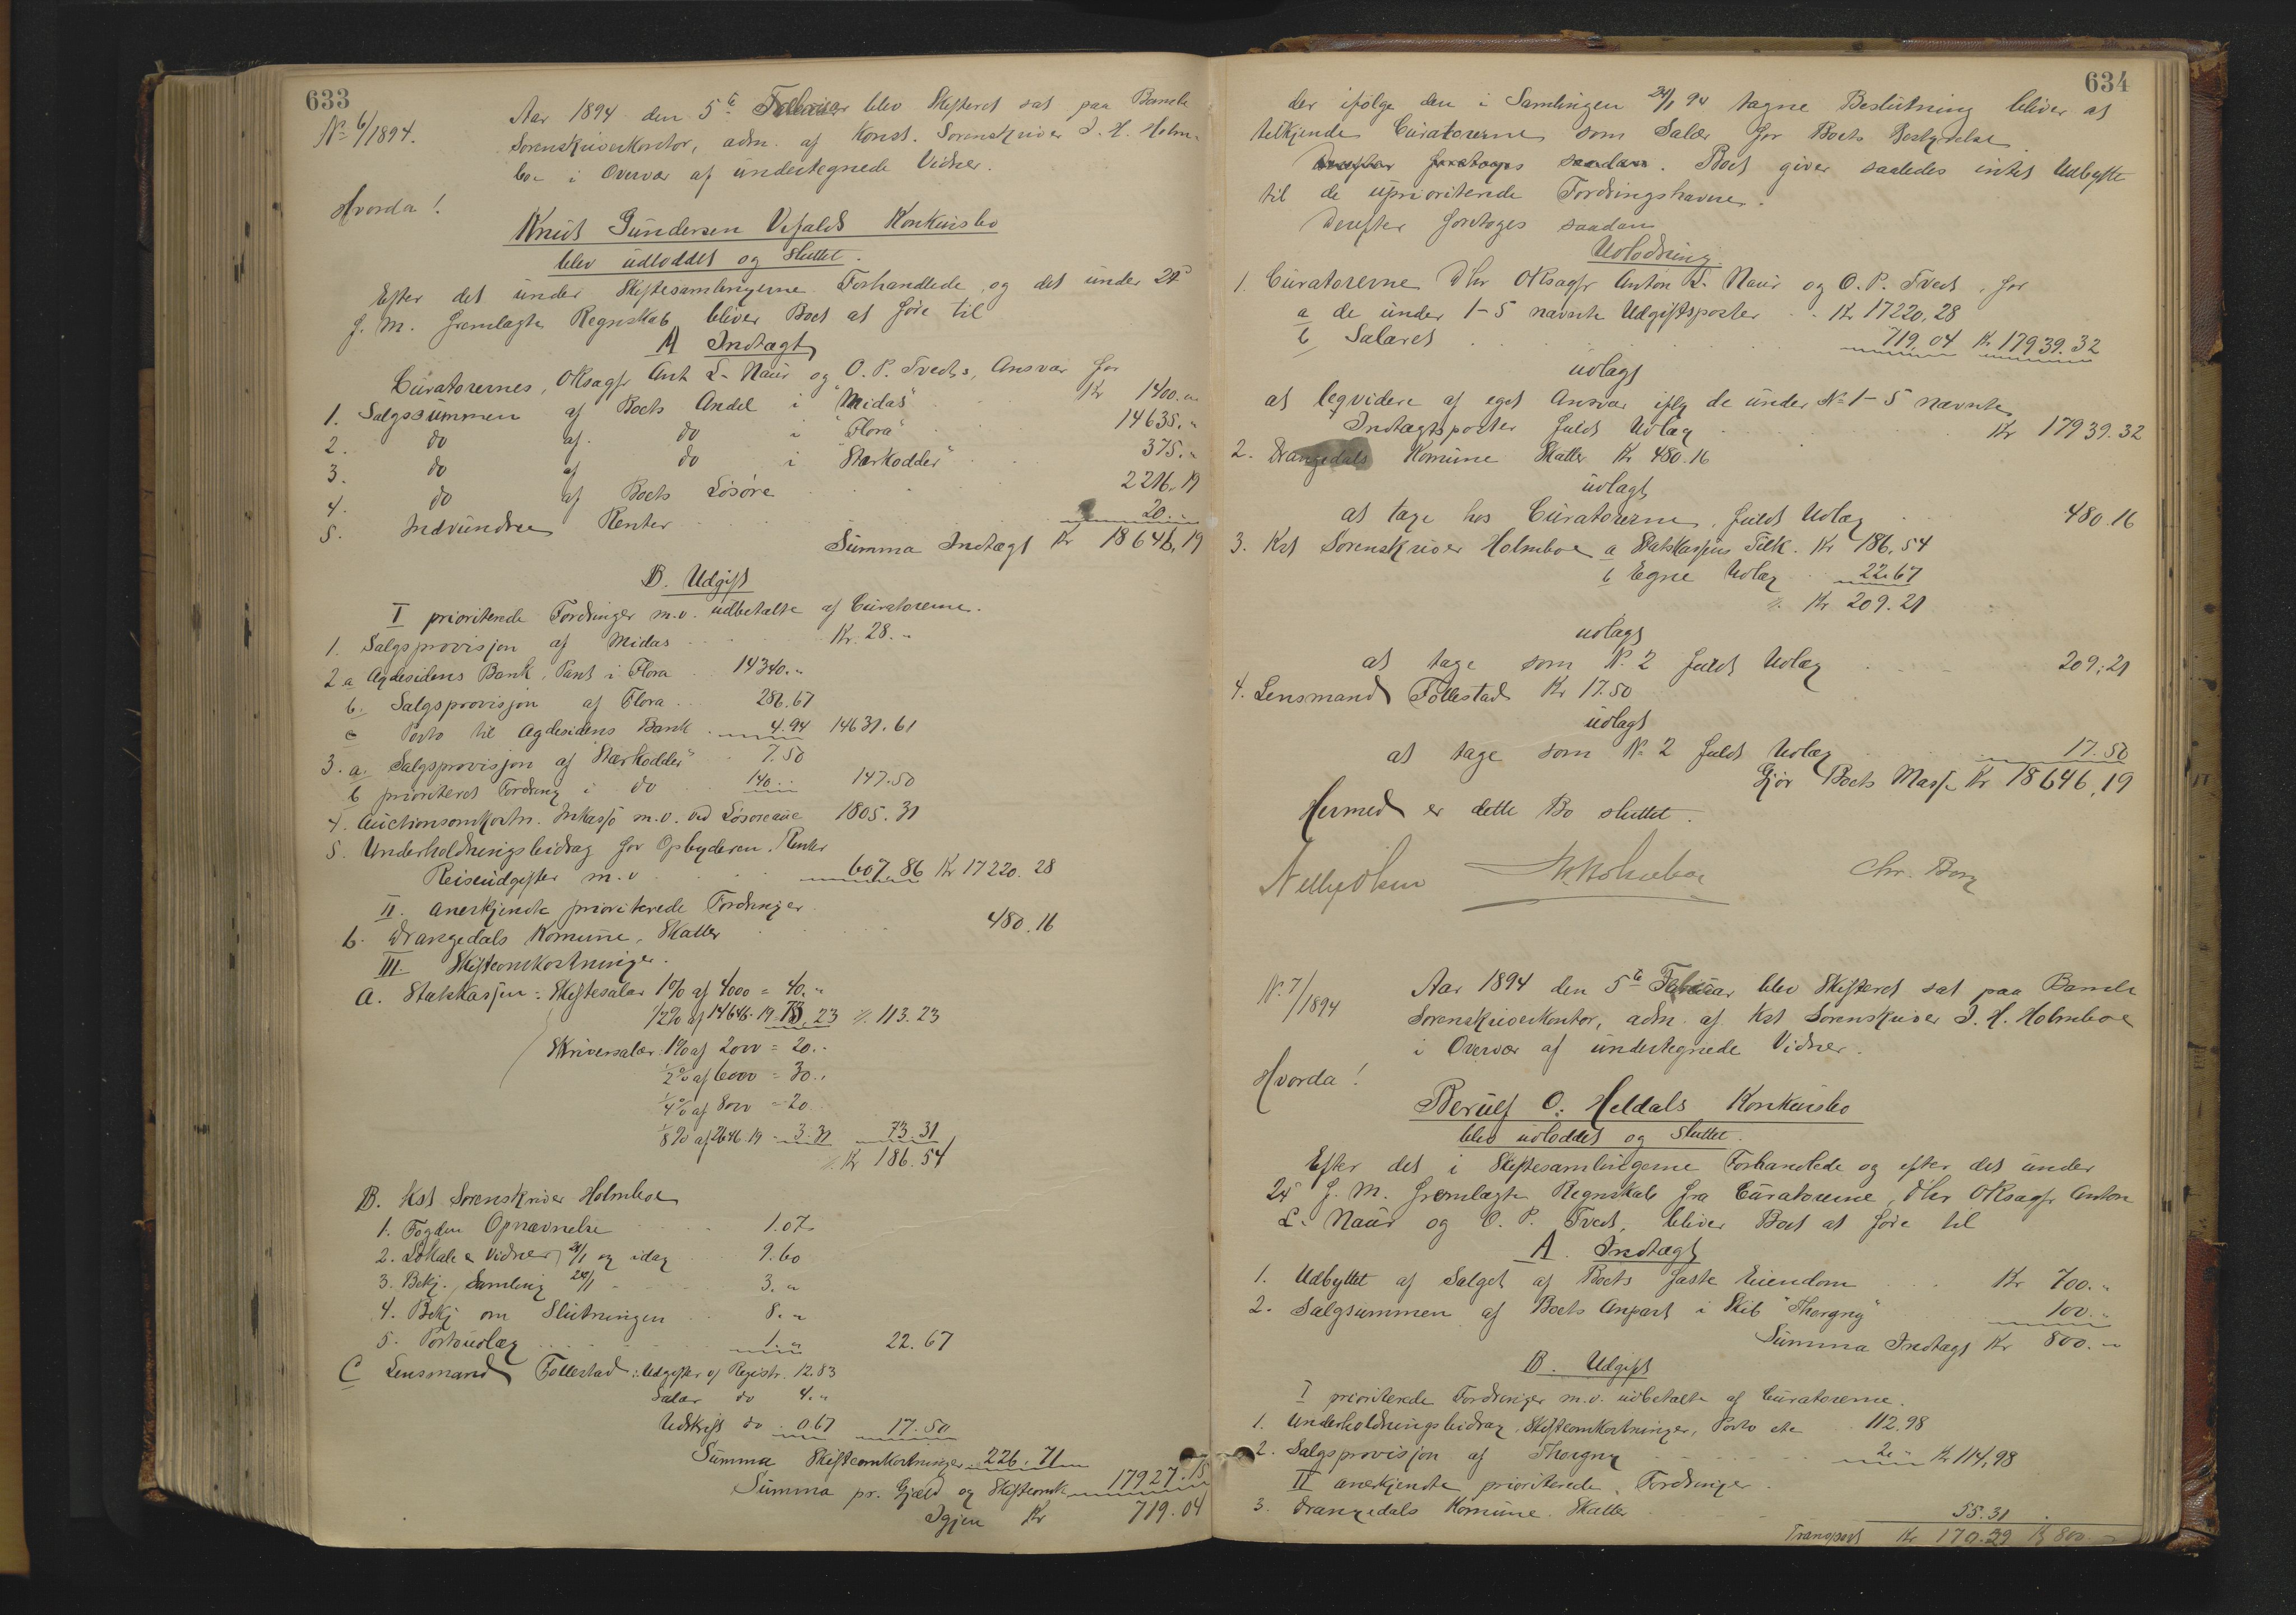 633
No 6/1894.
Aar 1894 den 5te Februar blev Skifteret sat paa Bamble
Sorenskriverkontor, adm. af Konst. Sorenskriver J. H. Holm-
boe i Overvær af undertegnede Vidner.
Hvorda!
Knud Gundersen Vefalds Konkursbo
blev udloddet og sluttet.
Efter det under Skiftesamlingerne Forhandlede, og det under 24d
f. M. fremlagte Regnskab bliver Boet at føre til
A Indtægt
Curatorernes, ORsagf. Ant L. Naur og O. P. Tvedts, Ansvar for
1. Salgssummen af Boets Andel i "Midas" Kr 1400.„
2. do af do i "Flora" 14635.„
3. do af do i "Stærkodder" 375.„
4. do af Boets Løsøre 2216.19
5. Indvundne Renter 20.„
Summa Indtægt Kr 18646,19
B. Udgift
I prioriterede Fordringer m.v. udbetalte af Curatorerne.
1. Salgsprovisjon af Midas Kr. 28.„
2 a Agdesidens Bank, Pant i Flora 14340.„
b. Salgsprovisjon af Flora 286.67
c Porto til Agdesidens Bank 4.94 14631.61
3. a. Salgsprovisjon af "Stærkodder" 7.50
b prioriteret Fordring i do 140.„ 147.50
4. Auctionsomkostn. Inkasso m.v. ved Løsøreauc 1805.31
5. Underholdningsbidrag for Opbyderen, Renter
Reiseudgifter m.v 607.86 Kr 17220.28
II. Anerkjendte prioriterede Fordringer
6. Drangedals Komune, Skatter 480.16
III. Skifteomkostninger.
A. Statskassen: Skiftesalær 1% af 4000 = 40.„
1/2% af 14646.19 = 73,23 /. 113.23
Skriversalær: 1% af 2000 = 20.„
1/2% af 6000 = 30.„
1/4% af 8000 = 20
1/8% af 2646.19 = 3.31 73.31
/. Kr 186.54
B. Kst Sorenskriver Holmboe
1. Fogden Opnævnelse 1.07
2. Lokale & Vidner, 24/1 og idag 9.60
3. Bekj., Samling 24/1 3.„
4. Bekj om Slutningen 8.„
5. Portoudlæg 1.„ 22.67
C Lensmand Follestad: Udgifter v/ Registr. 12.83
Salær do 4.„
Udskrift do 0.67 17.50
Summa Skifteomkostninger 226.71
Summa pr. Gjæld og Skifteomk. 17927.15
Igjen Kr 719.04
634
der ifølge den i Samlingen 24/1 94 tagne Beslutning bliver at
tilkjende Curatorerne som Salær for Boets Bestyrelse
Derefter foretages saadan. Boet giver saaledes intet Udbytte
til de uprioriterede Fordringshavere.
Derefter foretages saadan
Udlodning.
1. Curatorerne D'hr ORsagfr Anton L. Naur og O. P. Tvedt, for
a de under 1-5 nævnte Udgiftsposter Kr 17220.28
b Salæret 719.04 Kr. 17939.32
udlagt
at leqvidere af eget Ansvar iflg de under No 1-5 nævnte
Indtægtsposter fuldt Udlæg Kr 17939.32
2. Drangedals Komune Skatter Kr 480.16
udlagt
at tage hos Curatorerne, fuldt Udlæg 480.16
3. Kst Sorenskriver Holmboe a Statskassens Tilk. Kr 186.54
b Egne Udlæg 22.67
/. Kr 209.21
udlagt
at tage som No 2 fuldt Udlæg 209.21
4. Lensmand Follestad Kr 17.50
udlagt
at tage som No 2 fuldt Udlæg 17.50
Gjør Boets Masse Kr 18646,19
Hermed er dette Bo sluttet.
J. H. Holmboe Chr. Borg
No 7/1894
Aar 1894 den 5te Februar blev Skifteret sat paa Bamble
Sorenskriverkontor, adm. af Kst Sorenskriver J. H. Holmboe
i Overvær af undertegnede Vidner.
Hvorda!
Berulf O. Heldals Konkursbo
blev udloddet og sluttet.
Efter det i Skiftesamlingerne Forhandlede og efter det under
24d f. M. fremlagte Regnskab fra Curatorerne, D'hr ORsagfr Anton
L. Naur og O. P. Tvedt, bliver Boet at føre til
A. Indtægt
1. Udbyttet af Salget af Boets faste Eiendom Kr 700.„
2. Salgsummen af Boets Anpart i Skib "Thorgny" 100.„
Summa Indtægt Kr 800.„
B. Udgift
I prioriterede Fordringer m.v. udbetalte af Curatorerne.
1. Underholdningsbidrag, Skifteomkostninger, Porto etc 112.98
2. Salgsprovisjon af Thorgny 2.„ Kr 114,98
II anerkjendte prioriterede Fordringer.
3. Drangedals Komune. Skatter 55.31
Transport Kr 170.29 Kr 800.„